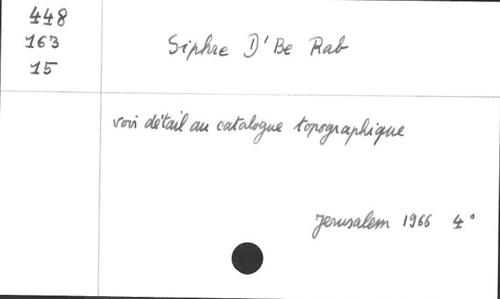 448
163
15
Siphre D'Be Rab
voir détail au catalogue topographique
Jerusalem 1966 4°